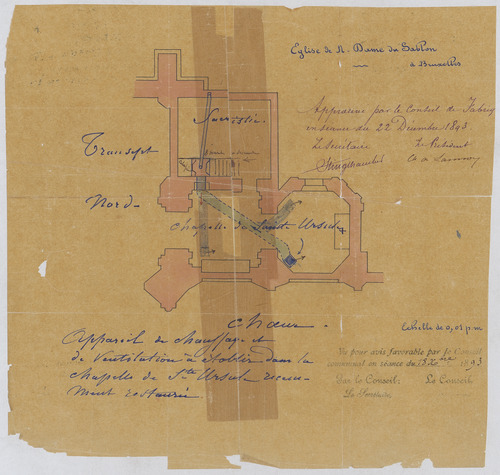 Eglise de N. Dame du Sablon
à Bruxelles
Approuvé par le Conseil de Fabriq
en séance du 22 Décembre 1893
Le Secrétaire Le Président
Sacristie
Transept
Nord
Chapelle de Sainte Ursule
Choeur.
Echelle de 0,01 p.m
Appareil de chauffage et
de ventilation à établir dans la
chapelle de Ste Ursule récem-
ment restaurée.
Vu pour avis favorable par le Conseil
communal en séance du 1893
Par le Conseil: Le Conseil
Le Secrétaire